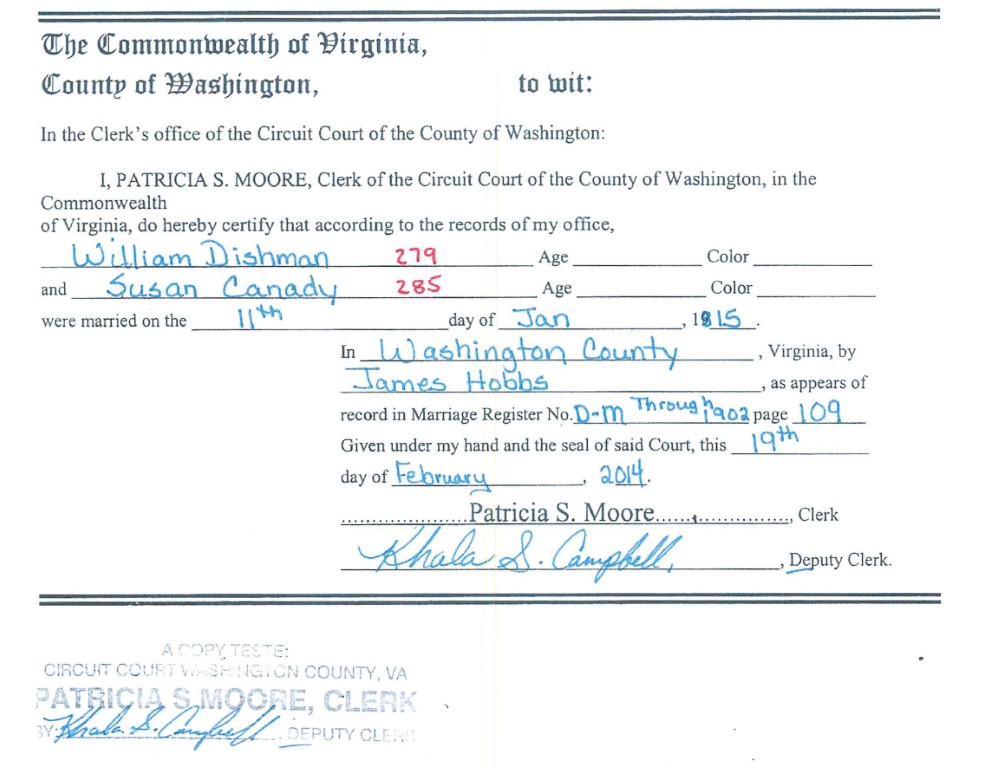 The Commonwealth of Virginia,
County of Washington, to wit:
In the Clerk's office of the Circuit Court of the County of Washington:
I, PATRICIA S. MOORE, Clerk of the Circuit Court of the County of Washington, in the
Commonwealth
of Virginia, do hereby certify that according to the records of my office,
William Dishman 279 Age Color
and Susan Canady 285 Age Color
were married on the 11th day of Jan, 1815.
In Washington County, Virginia, by
James Hobbs, as appears of
record in Marriage Register No. D-M Through 1902 page 109
Given under my hand and the seal of said Court, this 19th
day of February, 2014.
Patricia S. Moore, Clerk
Khala S. Campbell, Deputy Clerk.
A COPY TESTE:
CIRCUIT COURT WASHINGTON COUNTY, VA
PATRICIA S. MOORE, CLERK
BY: Khala S. Campbell DEPUTY CLERK